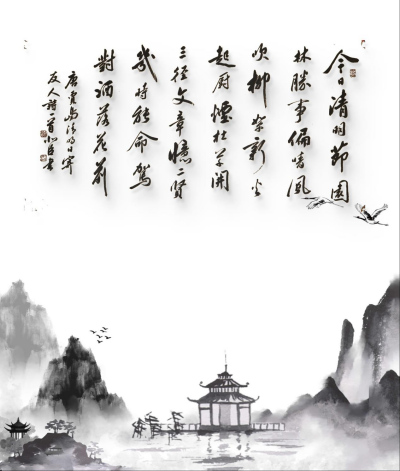 今日清明節園
林勝事偏晴風
吹柳絮新火
起厨煙杜草開
三徑文章憶二賢
幾時能命駕
對酒落花前
唐賈島清明日寄
友人詩一首